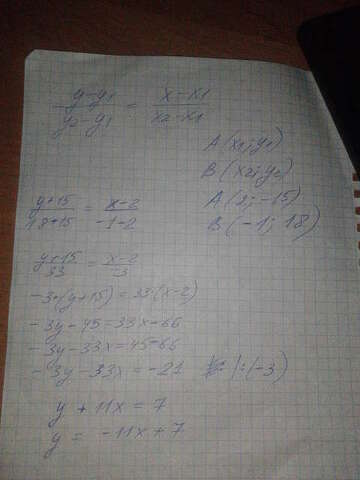 (y-y1)/(y2-y1) = (x-x1)/(x2-x1)
A(x1;y1)
B(x2;y2)
A(2;-15)
B(-1;18)
(y+15)/(18+15) = (x-2)/(-1-2)
(y+15)/33 = (x-2)/-3
-3·(y+15)=33·(x-2)
-3y-45=33x-66
-3y-33x=45-66
-3y-33x=-21 |:(-3)
y+11x=7
y=-11x+7